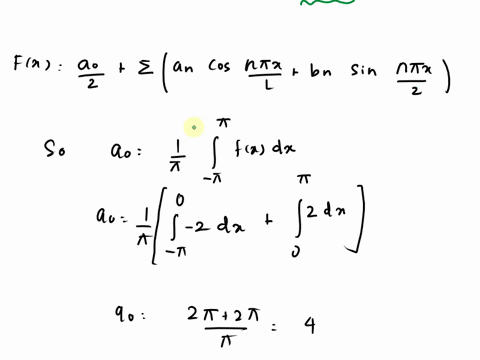 F(x): a₀/2 + Σ ( an cos nπx/L + bn sin nπx/2 )
So a₀: 1/π ∫_{-π}^{π} f(x) dx
a₀ = 1/π [ ∫_{-π}^{0} -2 dx + ∫_{0}^{π} 2 dx ]
a₀: (2π + 2π)/π = 4